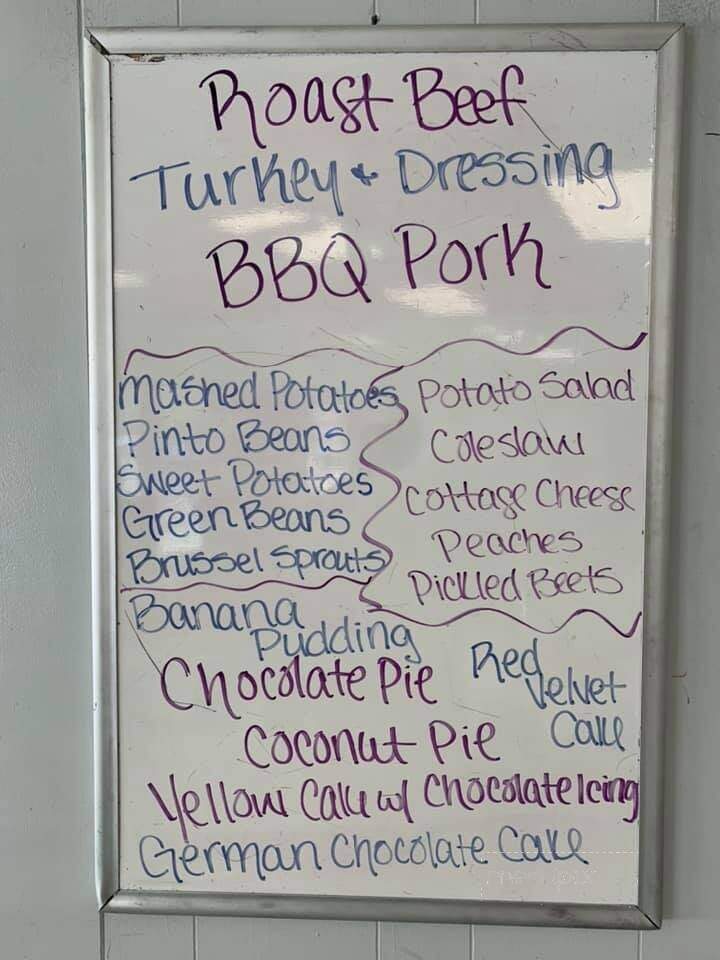 Roast Beef
Turkey + Dressing
BBQ Pork
Mashed Potatoes
Pinto Beans
Sweet Potatoes
Green Beans
Brussel Sprouts
Potato Salad
Coleslaw
Cottage Cheese
Peaches
Pickled Beets
Banana
Pudding
Chocolate Pie
Red
Velvet
Cake
Coconut Pie
Yellow Cake w/ Chocolate Icing
German Chocolate Cake